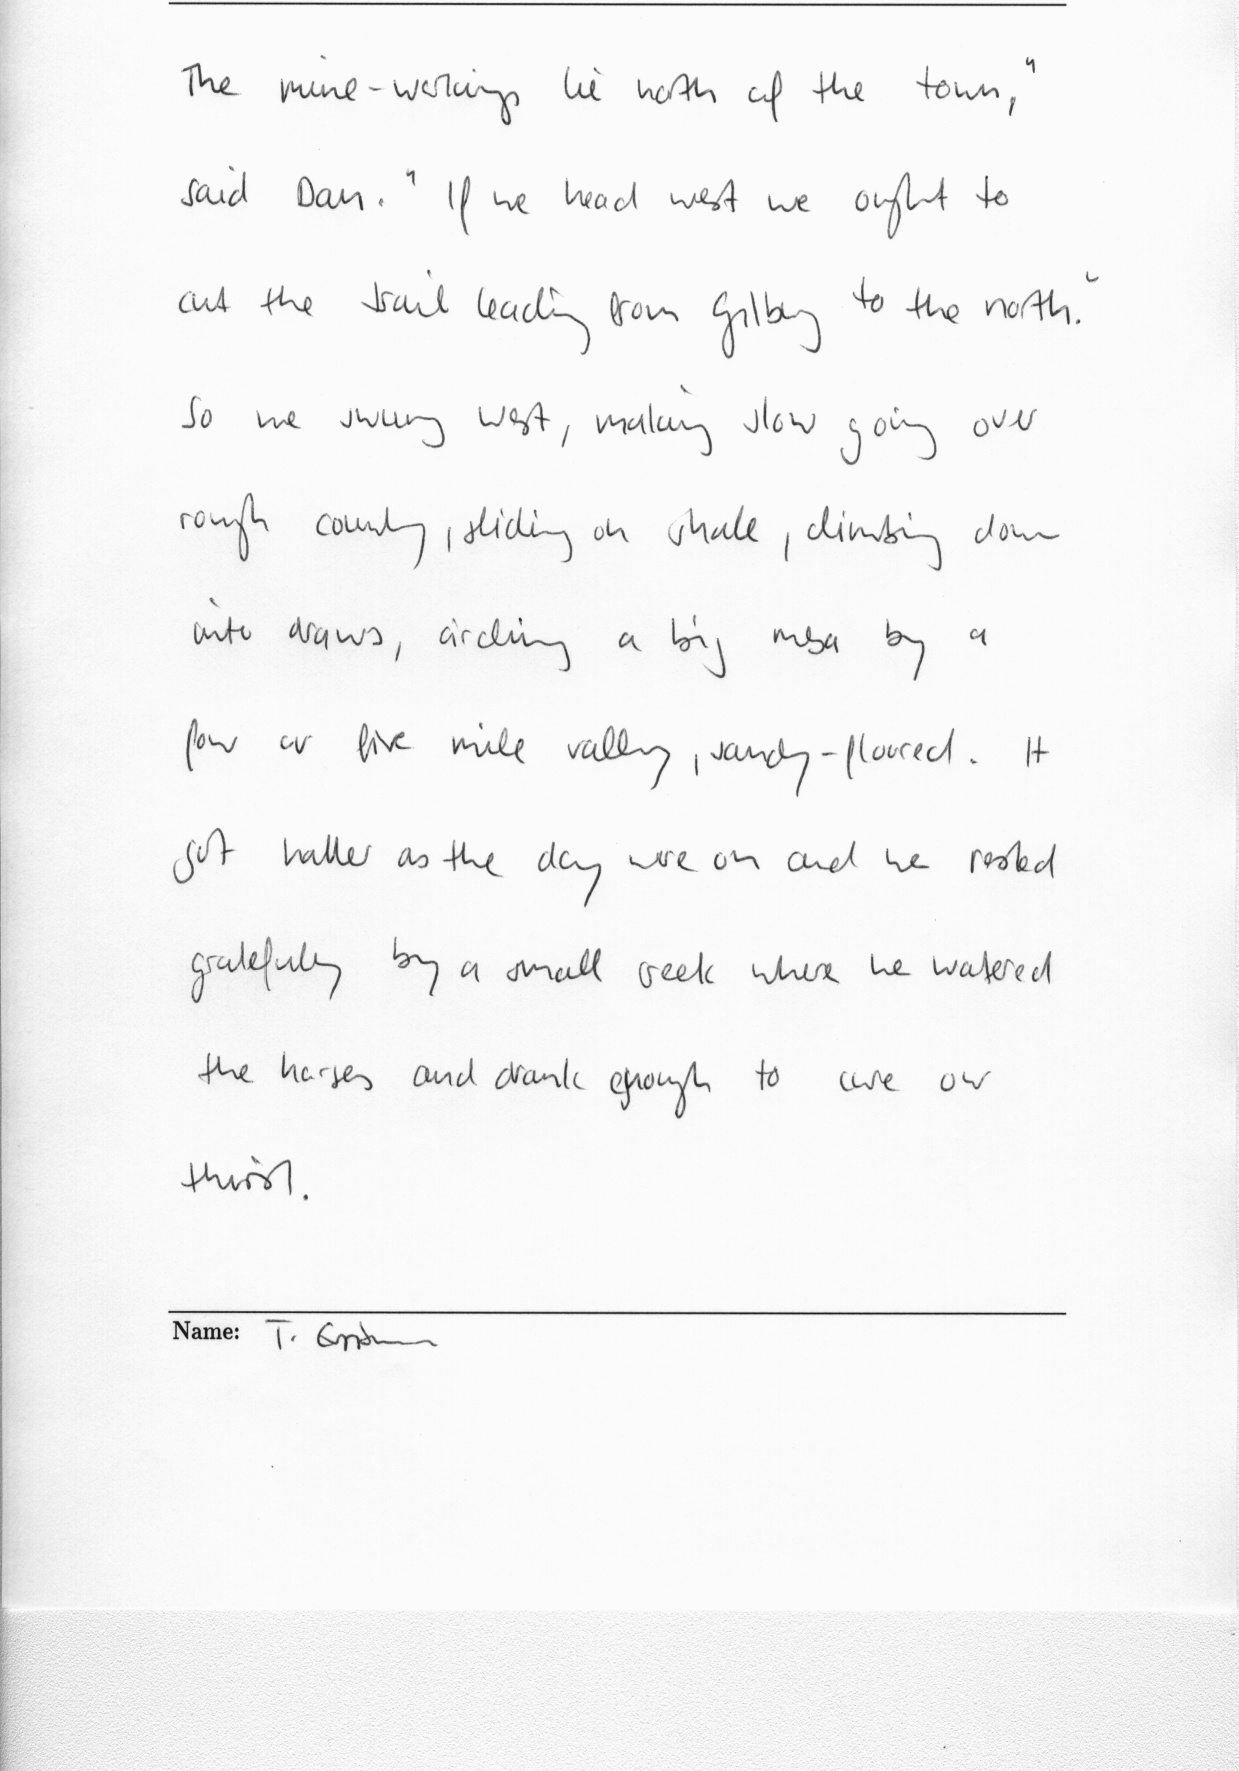 The mine-workings lie north of the town,"
said Dan. "If we head west we ought to
cut the trail leading from Gilbey to the north."
So we swung west, making slow going over
rough country, sliding on shale, climbing down
into draws, circling a big mesa by a
four or five mile valley, sandy-floored. It
got hotter as the day wore on and we rested
gratefully by a small creek where we watered
the horses and drank enough to cure our
thirst.
Name: T.